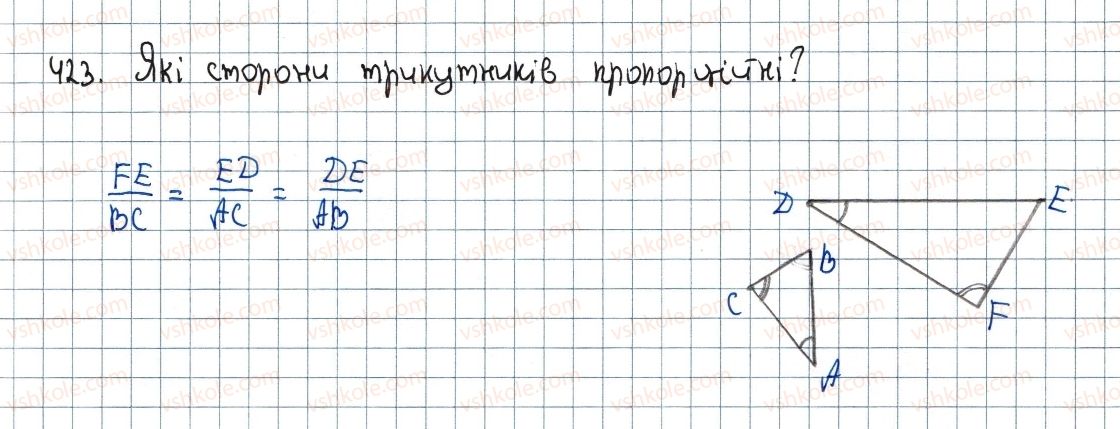 423. Які сторони трикутників пропорційні?
FE/BC = ED/AC = DE/AB
D E
B
C F
A